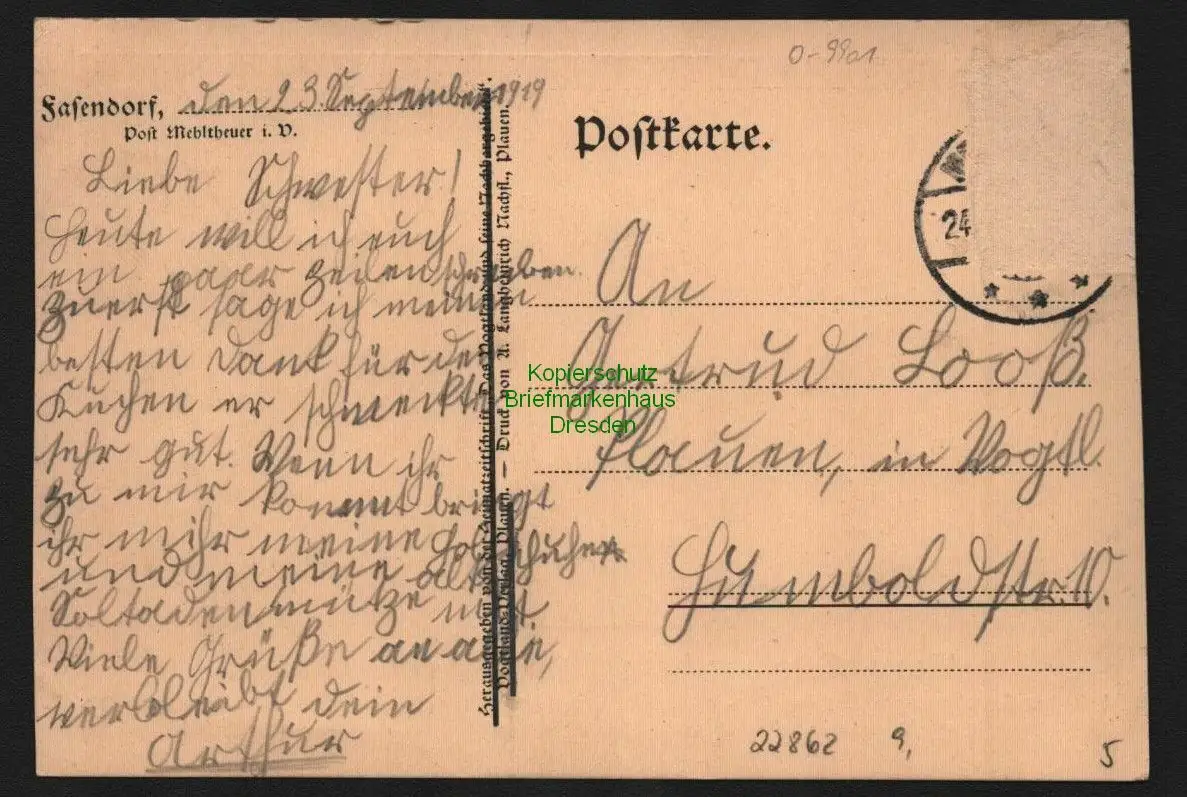 0-9901
Fasendorf, den 23. September 1919
Post Mehltheuer i. V.
Liebe Schwester!
Heute will ich euch
ein paar Zeilen schreiben.
Zuerst sage ich meinen
besten Dank für den
Kuchen er schmeckte
sehr gut. Wenn ihr
zu mir kommt bringt
ihr mihr meine Holzschuhe
und meine alte
Soltadenmütze mit
Viele Grüße an alle,
verbleibt dein
Arthur
Herausgegeben von der Heimatzeitschrift „Das Vogtland und seine Nachbargebiete“.
Vogtland-Verlag, Plauen. — Druck von A. Langheinrich Nachfl., Plauen.
Postkarte.
24
An
Gertrud Looß.
Plauen, in Vogtl.
Humboldstr. 10.
Kopierschutz
Briefmarkenhaus
Dresden
22862 9,
5